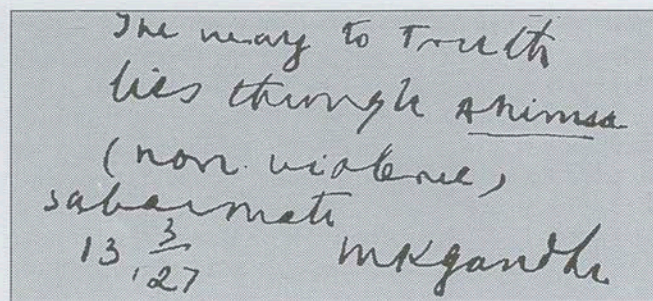 The way to Truth
lies through Ahimsa
(non-violence)
Sabarmati
13 3/27 MKGandhi